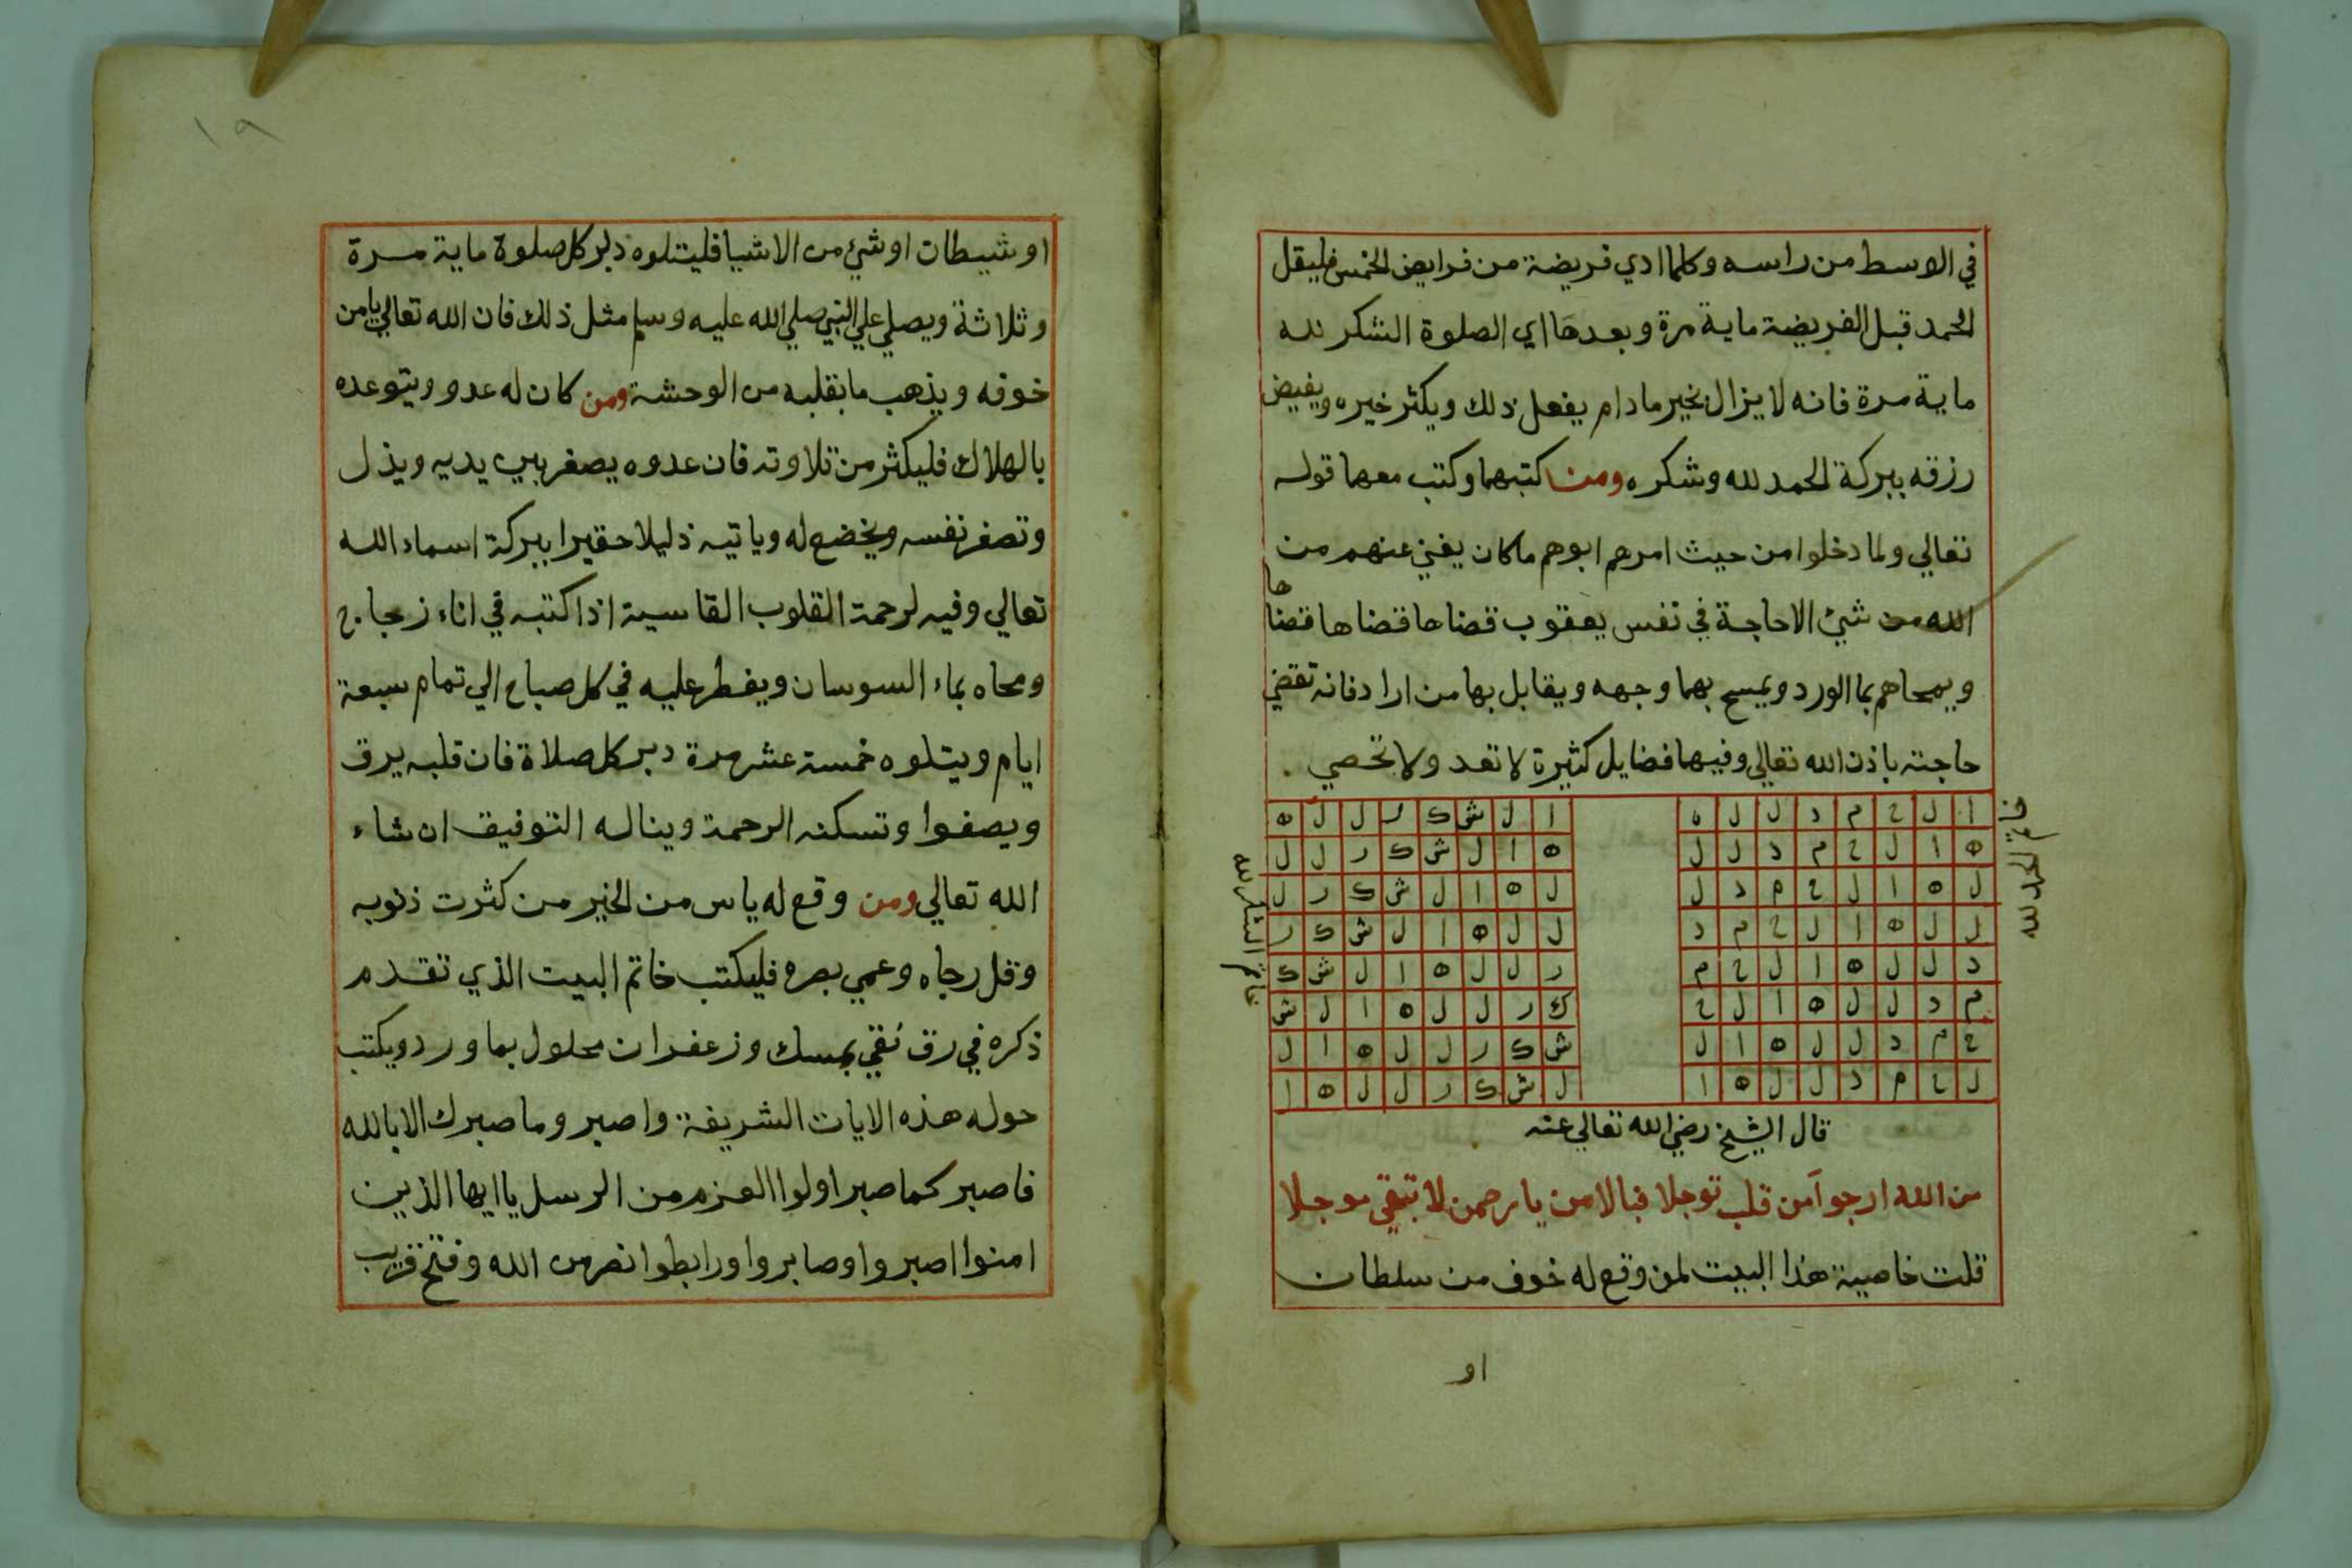 في الاوسط من راسه وكلما ادي فريضة من فرايض الخمس فليقل
الحمد قبل الفريضة ماية مرة وبعدها اي الصلوة الشكر لله
ماية مرة فانه لا يزال بخير مادام يفعل ذلك ويكثر خيره ويفيض
رزقه ببركة الحمد لله وشكره ومن كتبهما وكتب معهما قوله
تعالي ولما دخلوا من حيث امرهم ابوهم ماكان يغني عنهم من
الله من شيئ الا حاجة في نفس يعقوب قضاها قضاها قضاها
ويمحاهم بما الورد ويمسح بهما وجهه ويقابل بها من اراد فانه تقضي
حاجته باذن الله تعالي وفيها فضايل كثيرة لا تعد ولا تحصي .
خاتم الحمد لله
ا ل ح م د ل ل ه
ه ا ل ح م د ل ل
ل ه ا ل ح م د ل
ل ل ه ا ل ح م د
د ل ل ه ا ل ح م
م د ل ل ه ا ل ح
ح م د ل ل ه ا ل
ل ح م د ل ل ه ا
ا ل ش ك ر ل ل ه
ه ا ل ش ك ر ل ل
ل ه ا ل ش ك ر ل
ل ل ه ا ل ش ك ر
ر ل ل ه ا ل ش ك
ك ر ل ل ه ا ل ش
ش ك ر ل ل ه ا ل
ل ش ك ر ل ل ه ا
خاتم الشكر لله
قال الشيخ رضي الله تعالي عنه
من الله ارجوا آمن قلب توجلا فبالامن يا رحمن لا تبقي موجلا
قلت خاصية هذا البيت لمن وقع له خوف من سلطان
او
١٩
او شيطان او شيئ من الاشيا فليتلوه دبر كل صلوة ماية مرة
وثلاثة ويصلي علي النبي صلي الله عليه وسلم مثل ذلك فان الله تعالي يامن
خوفه ويذهب ما بقلبه من الوحشة ومن كان له عدو ويتوعده
بالهلاك فليكثر من تلاوته فان عدوه يصغر بين يديه ويذل
وتصغر نفسه ويخضع له وياتيه ذليلا حقيرا ببركة اسماء الله
تعالي وفيه لرحمة القلوب القاسية اذا كتبه في اناء زجاج
ومحاه بماء السوسان ويفطر عليه في كل صباح الي تمام سبعة
ايام ويتلوه خمسة عشر مرة دبر كل صلاة فان قلبه يرق
ويصفوا وتسكنه الرحمة ويناله التوفيق ان شاء
الله تعالي ومن وقع له ياس من الخير من كثرت ذنوبه
وقل رجاه وعمي بصره فليكتب خاتم البيت الذي تقدم
ذكره في رق نقي بمسك وزعفران محلول بماورد ويكتب
حوله هذه الايات الشريفة واصبر وما صبرك الا بالله
فاصبر كما صبر اولوا العزم من الرسل يا ايها الذين
امنوا اصبروا وصابروا ورابطوا نصر من الله وفتح قريب